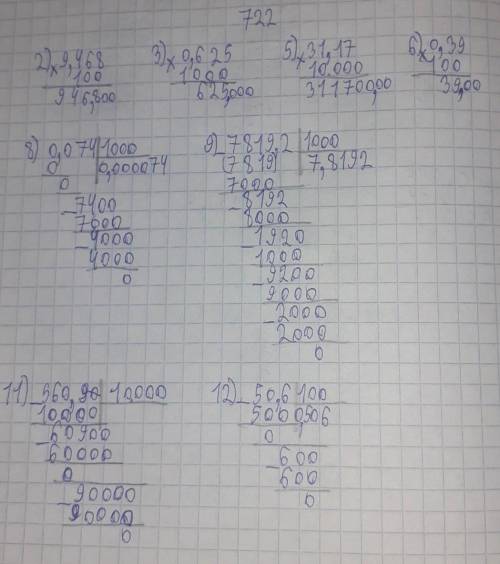 722
2) × 9,468
100
946,800
3) × 0,625
1000
625,000
5) × 31,17
10.000
311700,00
6) × 0,39
100
39,00
8) 0,074 | 1000
0 | 0,000074
0
- 7400
7000
- 4000
4000
0
9) - 7819,2 | 1000
(7819) | 7,8192
7000
- 8192
8000
- 1920
1000
- 9200
9000
- 2000
2000
0
11) - 560,90 | 10,000
10000
- 60900
60000
0
- 90000
90000
0
12) - 50,6 | 100
500 | 0,506
0
- 600
600
0